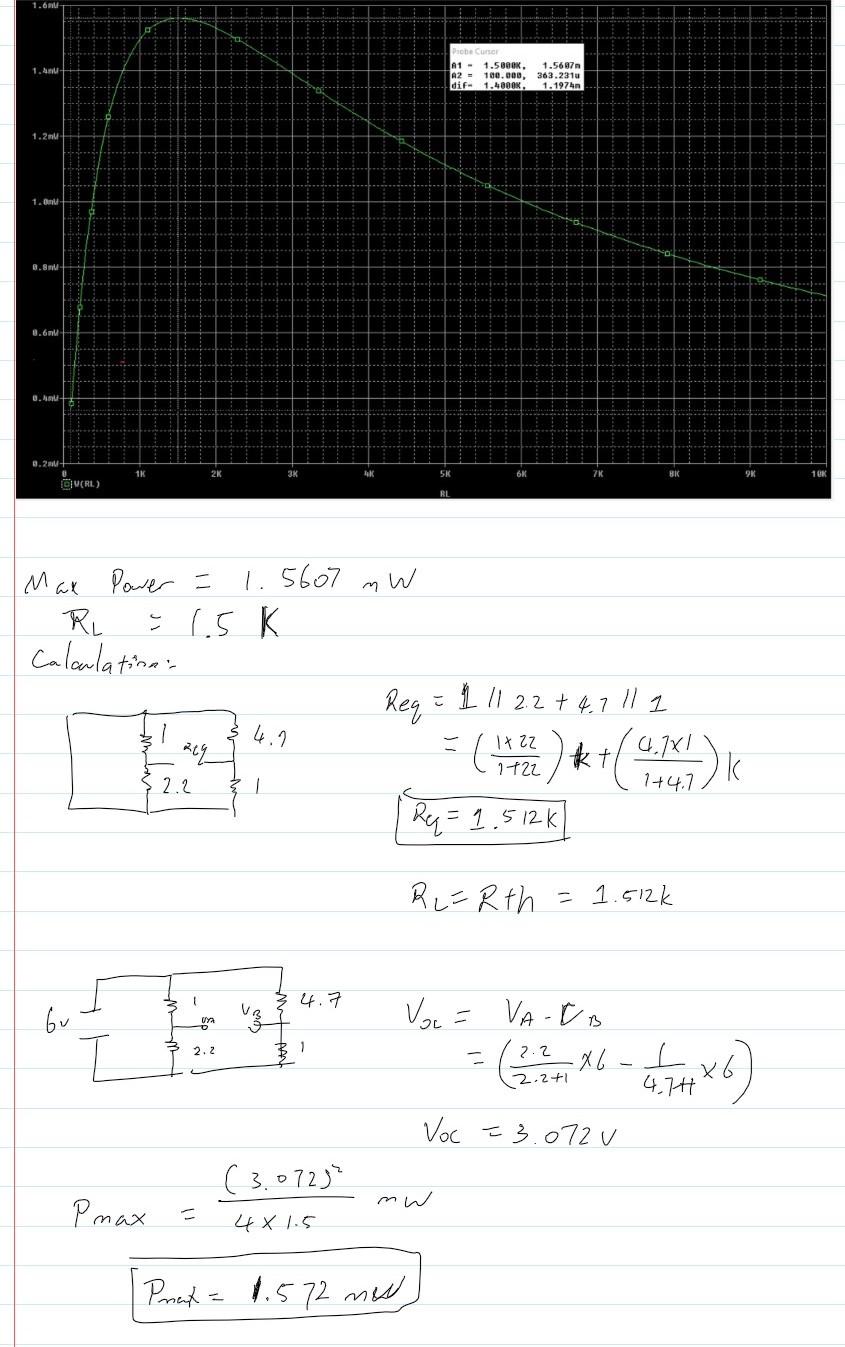 1.6mW
Probe Cursor
A1 = 1.5000K, 1.5607m
A2 = 100.000, 363.231u
dif= 1.4000K, 1.1974m
1.4mW
1.2mW
1.0mW
0.8mW
0.6mW
0.4mW
0.2mW
0 1K 2K 3K 4K 5K 6K 7K 8K 9K 10K
W(RL)
RL
Max Power = 1.5607 mW
RL = 1.5 K
Calculation:-
1 Req 4.7
2.2 1
Req = 1 // 2.2 + 4.7 // 1
= (1×2.2/1+2.2) k + (4.7×1/1+4.7) K
Rq = 1.512K
RL = Rth = 1.512k
6v 1 VA VB 4.7
2.2 1
Voc = VA - VB
= (2.2/2.2+1 × 6 - 1/4.7+1 × 6)
Voc = 3.072 V
Pmax = (3.072)²/4 × 1.5 mW
Pmax = 1.572 mW